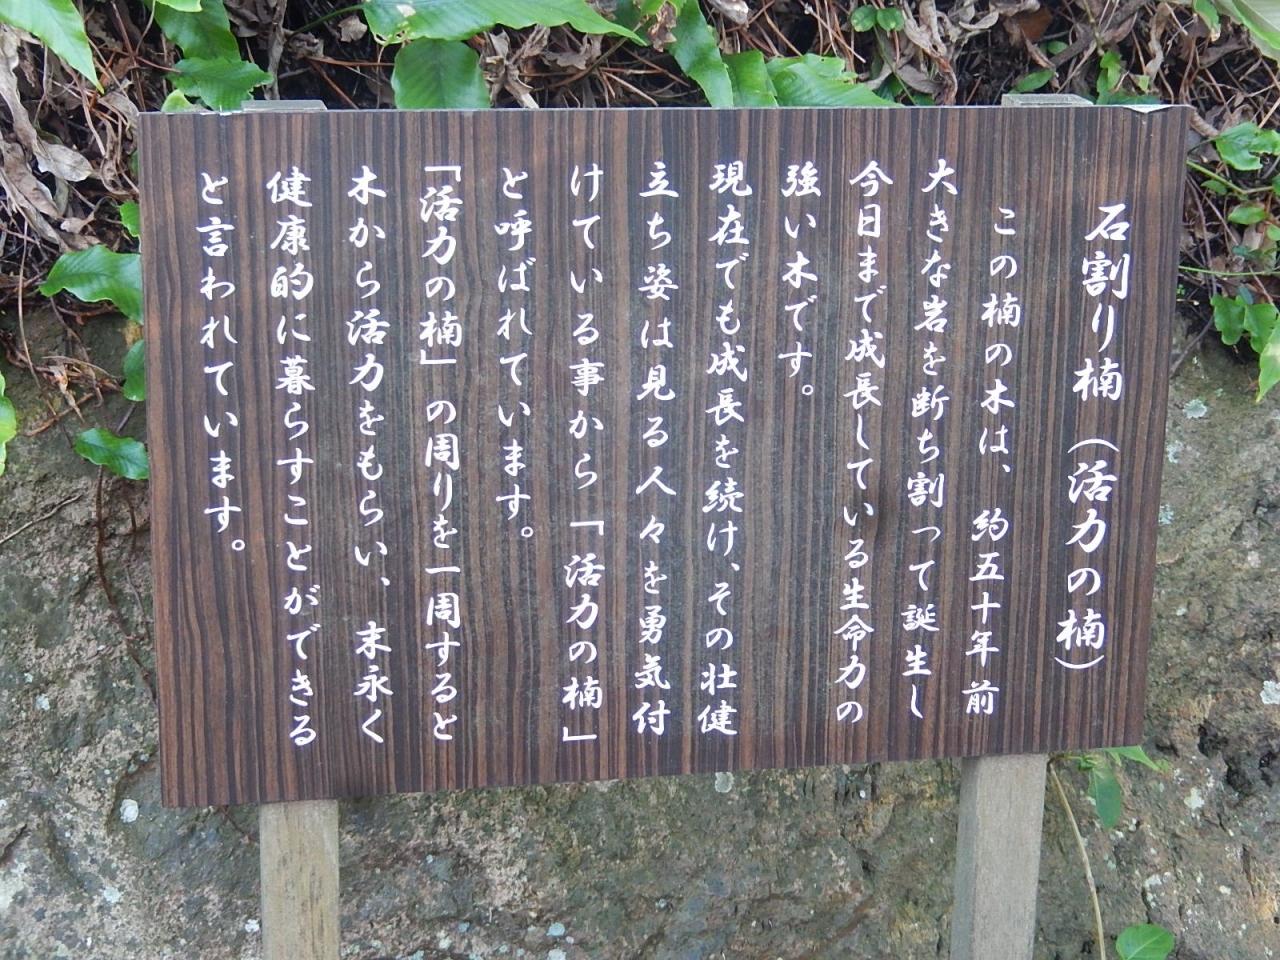 石割り楠（活力の楠）
この楠の木は、約五十年前
大きな岩を断ち割って誕生し
今日まで成長している生命力の
強い木です。
現在でも成長を続け、その壮健
立ち姿は見る人々を勇気付
けている事から「活力の楠」
と呼ばれています。
「活力の楠」の周りを一周すると
木から活力をもらい、末永く
健康的に暮らすことができる
と言われています。